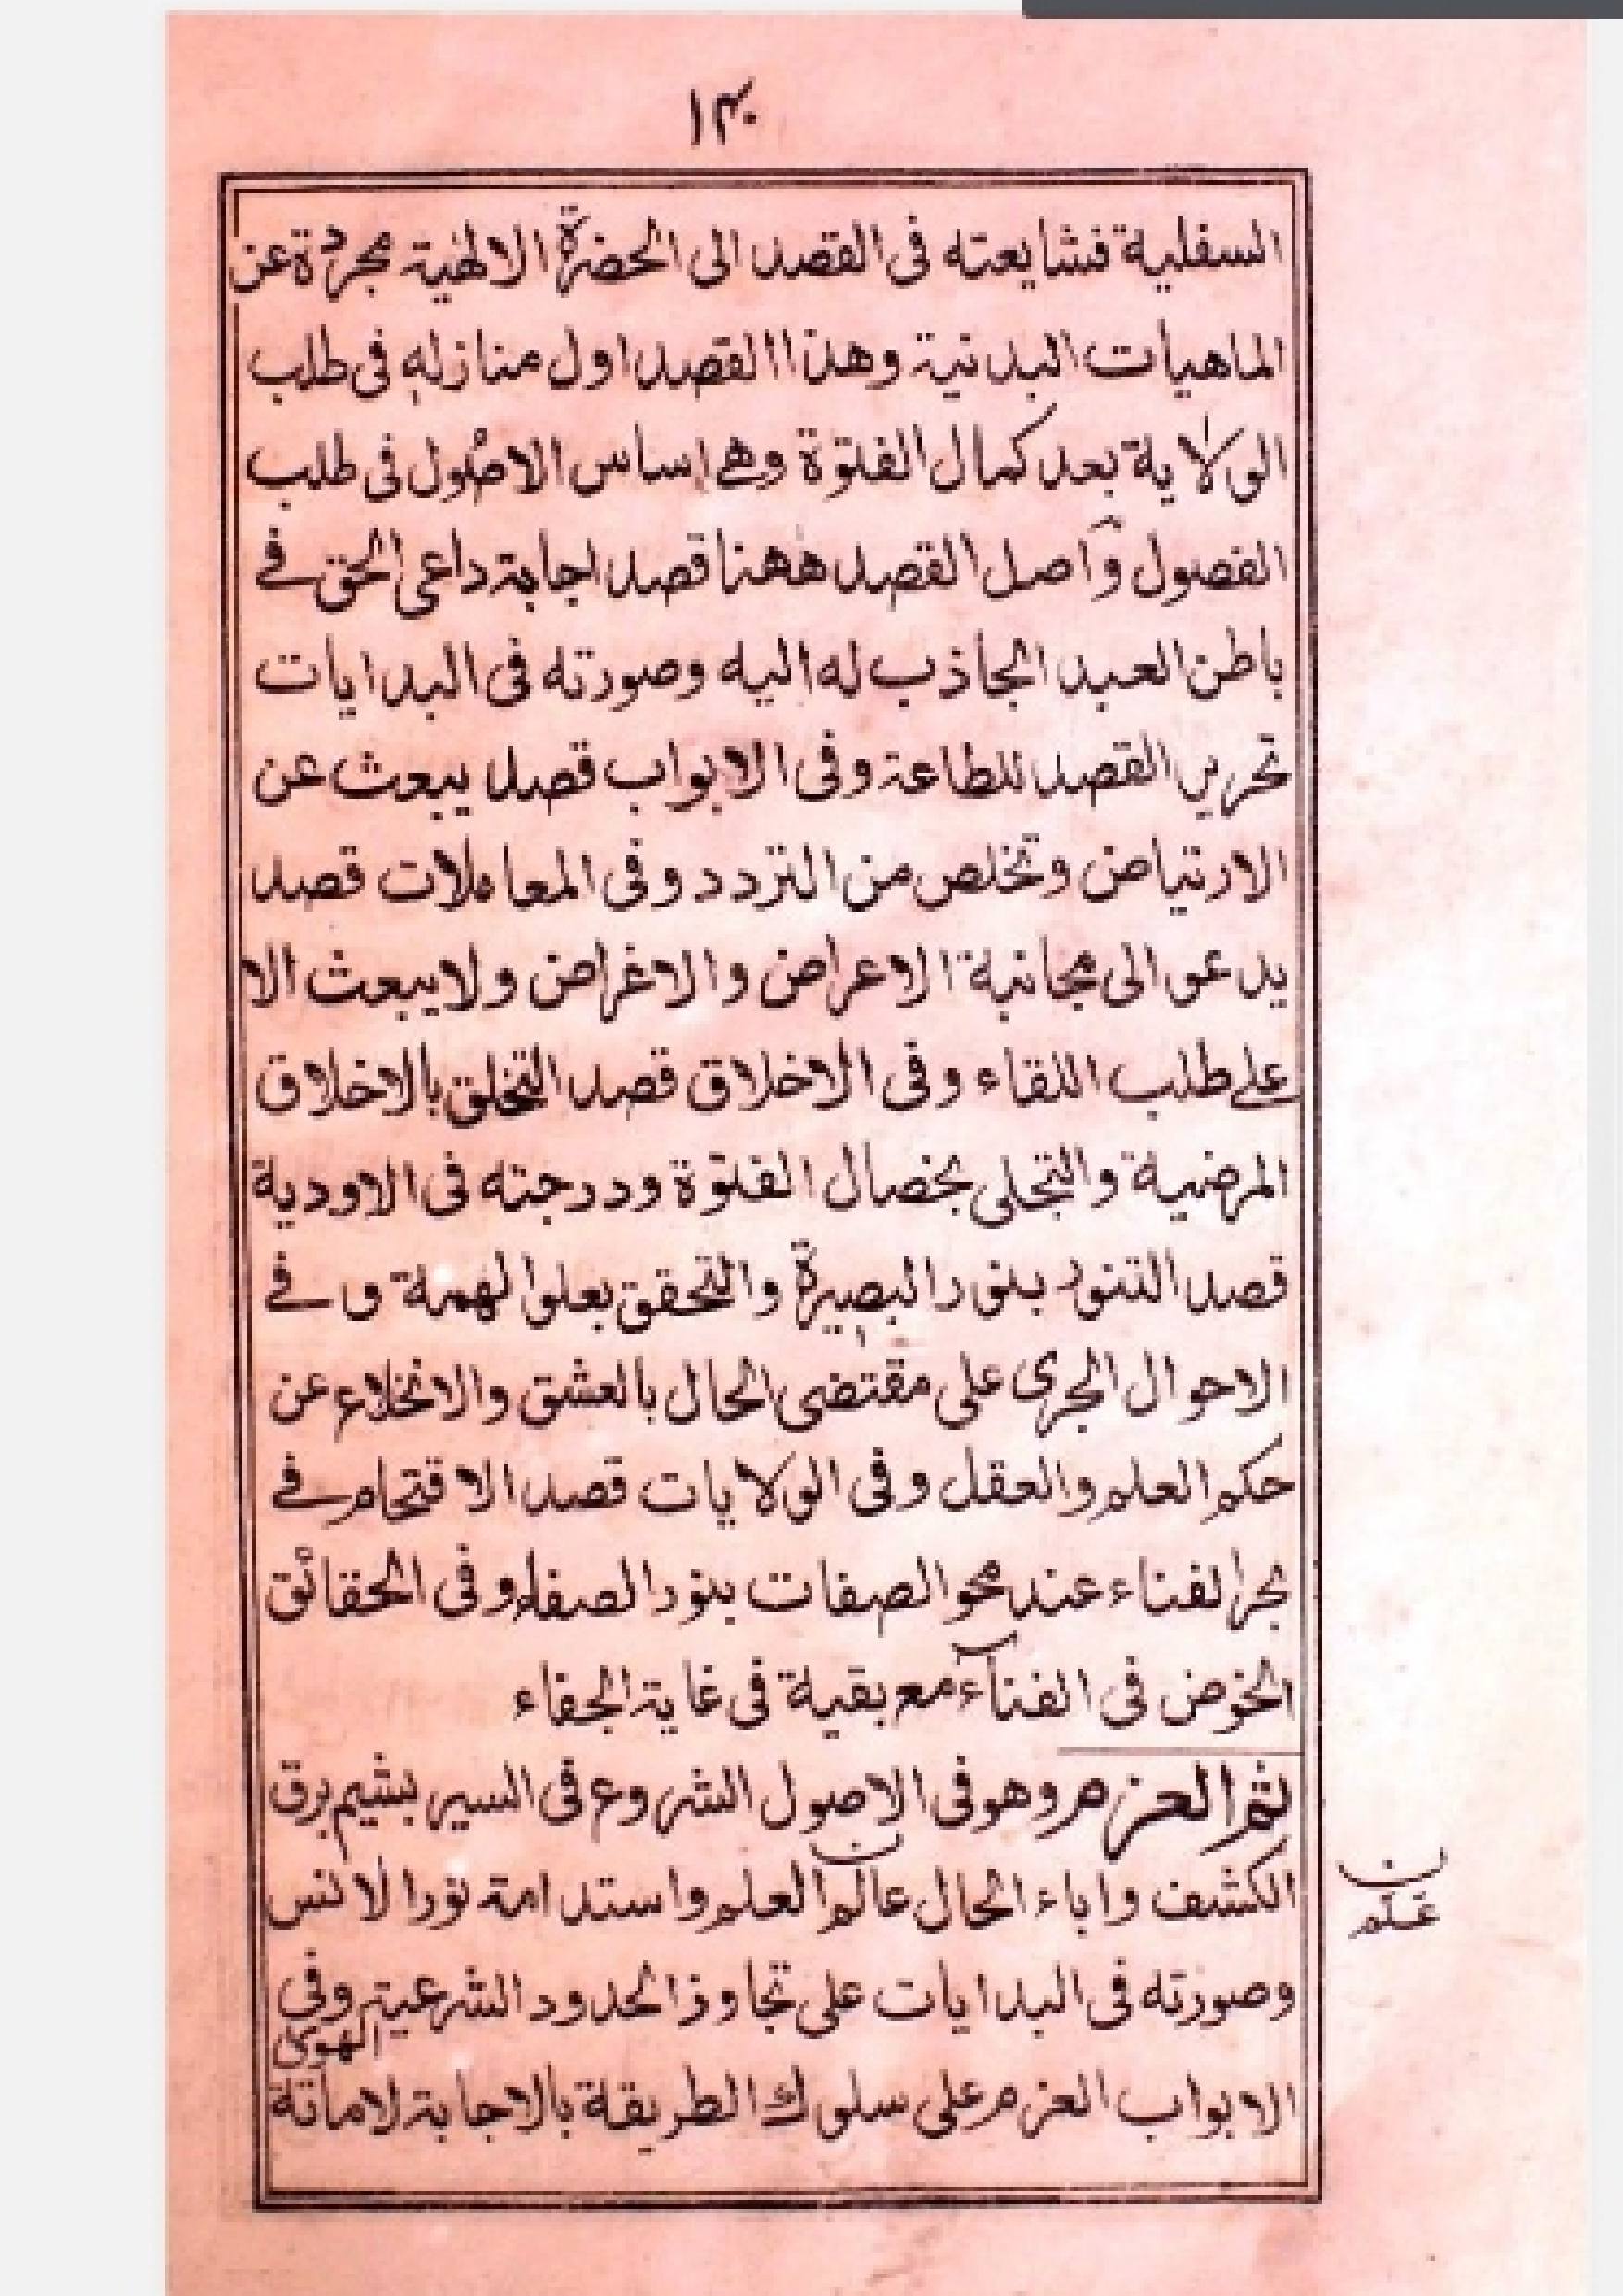 ١٣٠
السفلية فشايعته فى القصد الى الحضرة الالهية مجردة عن
الماهيات البدنية وهذا القصد اول منازله فى طلب
الولاية بعد كمال الفتوة وهى اساس الاصول فى طلب
الفصول واصل القصد ههنا قصد اجابة داعى الحق فى
باطن العبد الجاذب له اليه وصورته فى البدايات
تحرير القصد للطاعة وفى الابواب قصد يبعث عن
الارتياض وتخلص من التردد وفى المعاملات قصد
يدعو الى مجانبة الاعراض والاغراض ولا يبعث الا
على طلب اللقاء وفى الاخلاق قصد التخلق بالاخلاق
المرضية والتجلى بخصال الفتوة ودرجته فى الاودية
قصد التنور بنور البصيرة والتحقق بعلو الهمة و فى
الاحوال الجرى على مقتضى الحال بالعشق والانخلاع عن
حكم العلم والعقل وفى الولايات قصد الاقتحام فى
بحر الفناء عند محو الصفات بنور الصفاء وفى الحقائق
الخوض فى الفناء مع بقية فى غاية الجفاء
ثم العزم وهو فى الاصول الشروع فى السير بشيم برق
الكشف واباء الحال عالم العلم واستدامة نور الانس
ن
علم
وصورته فى البدايات على تجاوز الحدود الشرعية وفى
الابواب العزم على سلوك الطريقة بالاجابة لاماتة
الهوى